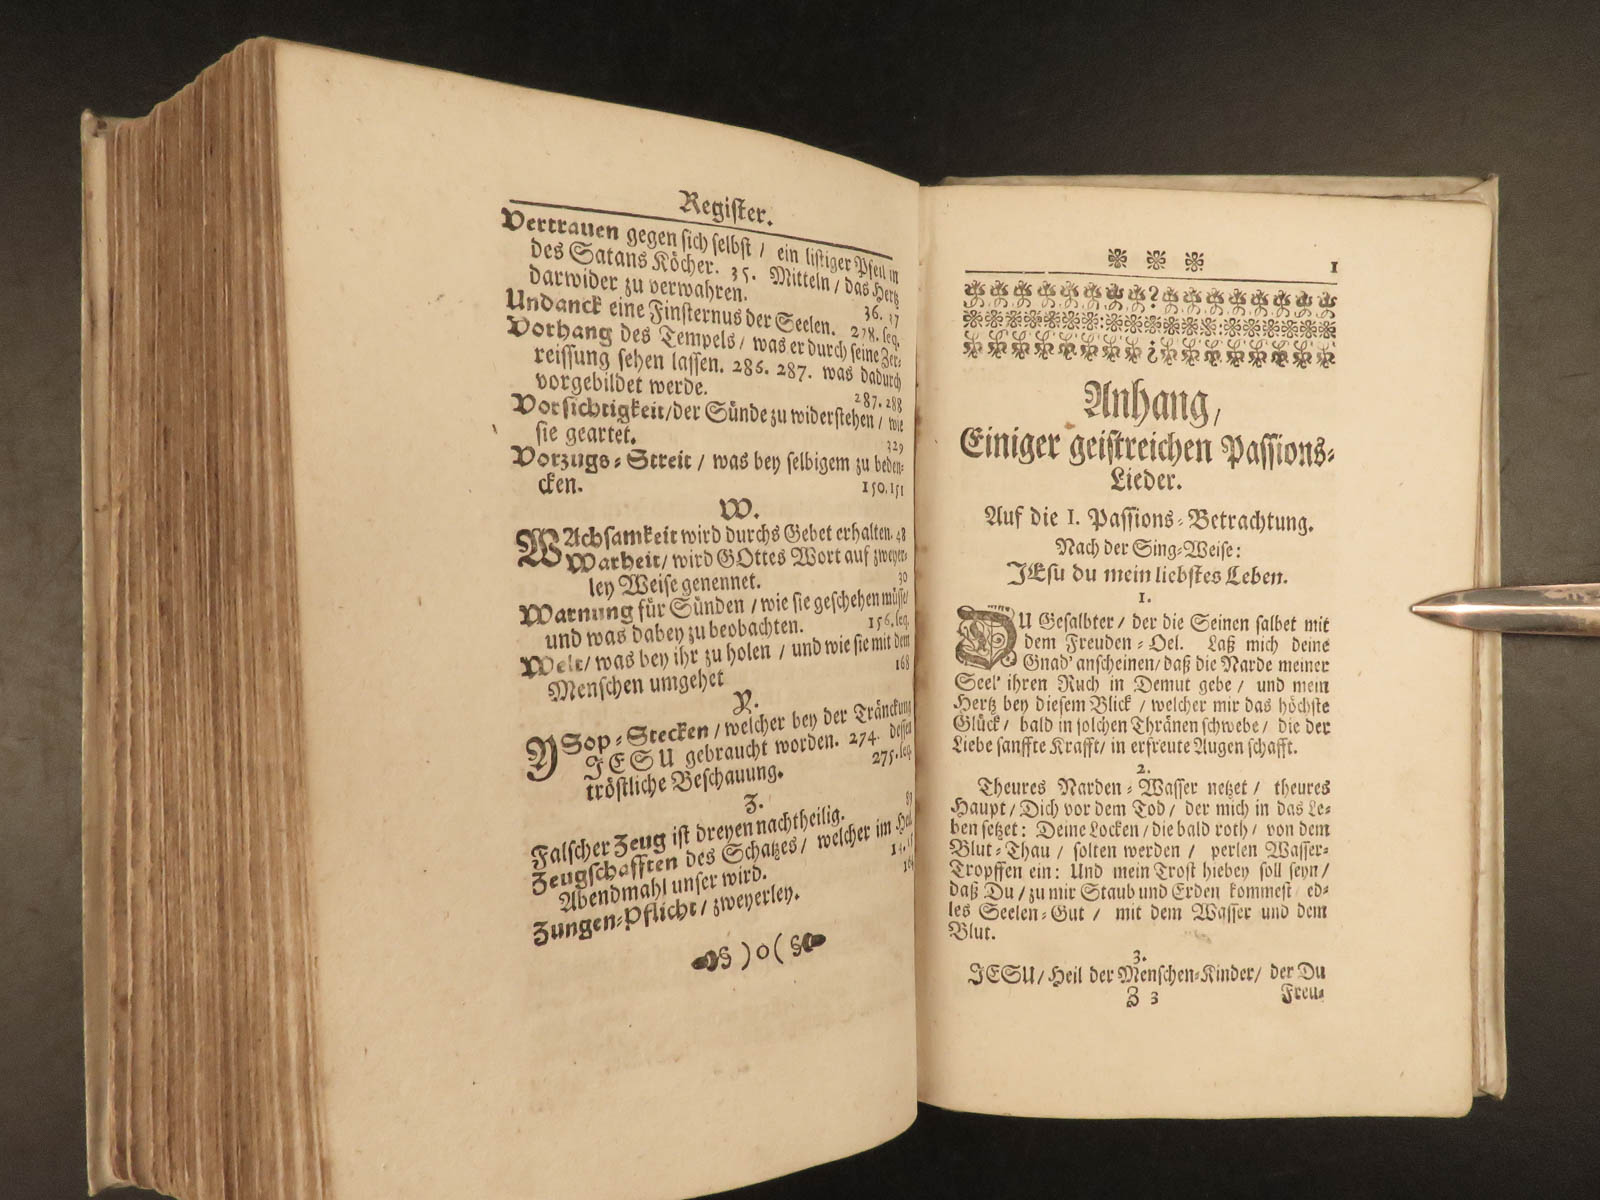 Register.
Vertrauen gegen sich selbst / ein listiger Pfeil in
des Satans Köcher. 35. Mitteln / das Hertz
darwider zu verwahren. 36. 37
Undanck eine Finsternus der Seelen. 278. seq.
Vorhang des Tempels / was er durch seine Zer-
reissung sehen lassen. 286. 287. was dadurch
vorgebildet werde. 287. 288
Vorsichtigkeit / der Sünde zu widerstehen / wie
sie geartet. 329
Vorzugs-Streit / was bey selbigem zu beden-
cken. 150. 151
W.
WAchsamkeit wird durchs Gebet erhalten. 48
Warheit / wird GOttes Wort auf zweyer-
ley Weise genennet. 30
Warnung für Sünden / wie sie geschehen müsse /
und was dabey zu beobachten. 156. seq.
Welt / was bey ihr zu holen / und wie sie mit dem
Menschen umgehet 168
Y.
YSop-Stecken / welcher bey der Tränckung
JESU gebraucht worden. 274. dessen
tröstliche Beschauung. 275. seq.
Z.
Falscher Zeug ist dreyen nachtheilig. 89
Zeugschafften des Schatzes / welcher im Heil.
Abendmahl unser wird. 14. 15
Zungen-Pflicht / zweyerley.
)o(
1
Anhang,
Einiger geistreichen Passions-
Lieder.
Auf die I. Passions-Betrachtung.
Nach der Sing-Weise:
JEsu du mein liebstes Leben.
1.
DU Gesalbter / der die Seinen salbet mit
dem Freuden-Oel. Laß mich deine
Gnad' anscheinen / daß die Narde meiner
Seel' ihren Ruch in Demut gebe / und mein
Hertz bey diesem Blick / welcher mir das höchste
Glück / bald in solchen Thränen schwebe / die der
Liebe sanffte Krafft / in erfreute Augen schafft.
2.
Theures Narden-Wasser netzet / theures
Haupt / Dich vor dem Tod / der mich in das Le-
ben setzet: Deine Locken / die bald roth / von dem
Blut-Thau / solten werden / perlen Wasser-
Tropffen ein: Und mein Trost hiebey soll seyn /
daß Du / zu mir Staub und Erden kommest / ed-
les Seelen-Gut / mit dem Wasser und dem
Blut.
3.
JESU / Heil der Menschen-Kinder / der Du
Z 3 Freu-